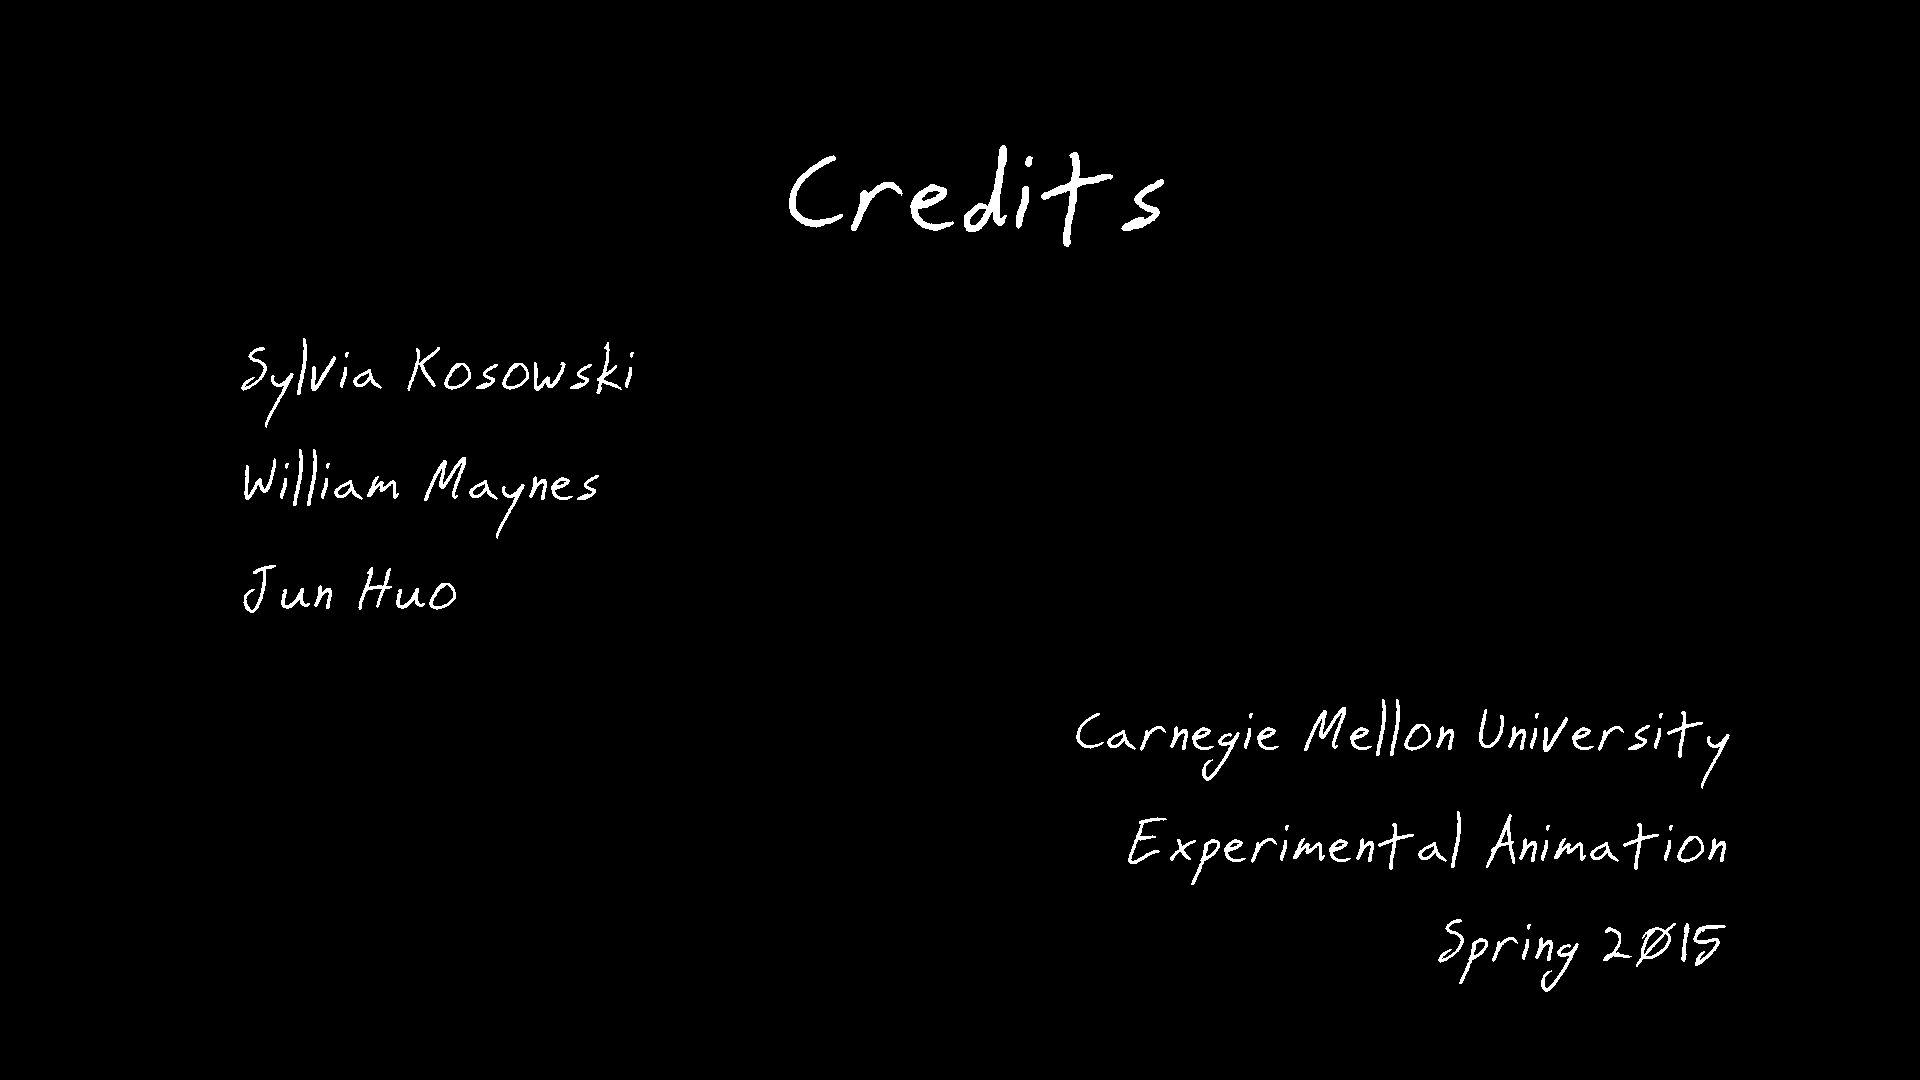 Credits
Sylvia Kosowski
William Maynes
Jun Huo
Carnegie Mellon University
Experimental Animation
Spring 2015